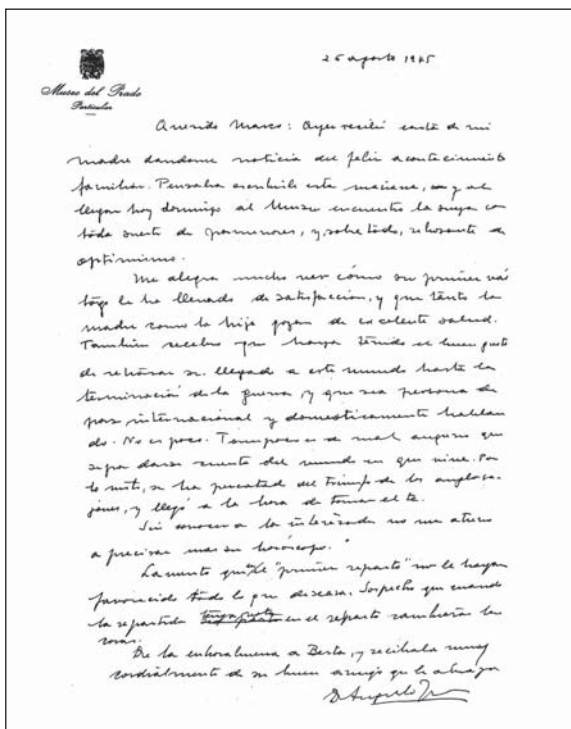 26 agosto 1945
Museo del Prado
Particular
Querido Marco: Ayer recibí carta de mi
madre dandome noticia del feliz acontecimiento
familiar. Pensaba escribirle esta mañana, y al
llegar hoy domingo al Museo encuentro la suya con
toda suerte de pormenores, y, sobre todo, rebosante de
optimismo.
Me alegra mucho ver cómo su primer vás
tago le ha llenado de satisfaccion, y que tanto la
madre como la hija gozan de excelente salud.
También celebro que haya tenido el buen gusto
de retrasar su llegada a este mundo hasta la
terminación de la guerra, y que sea persona de
paz internacional y domesticamente hablan
do. No es poco. Tampoco es de mal augurio que
sepa darse cuenta del mundo en que vive. Por
lo visto, se ha percatado del triunfo de los anglosa-
jones, y llegó a la hora de tomar el té.
Sin conocer a la interesada no me atrevo
a precisar mas su horóscopo.
Lamento que el "primer reparto" no le haya
favorecido todo lo que deseaba. Sospecho que cuando
la repartida en el reparto cambiarán las
cosas.
De la enhorabuena a Berta, y recíbala muy
cordialmente de su buen amigo que le abraza
D Angulo